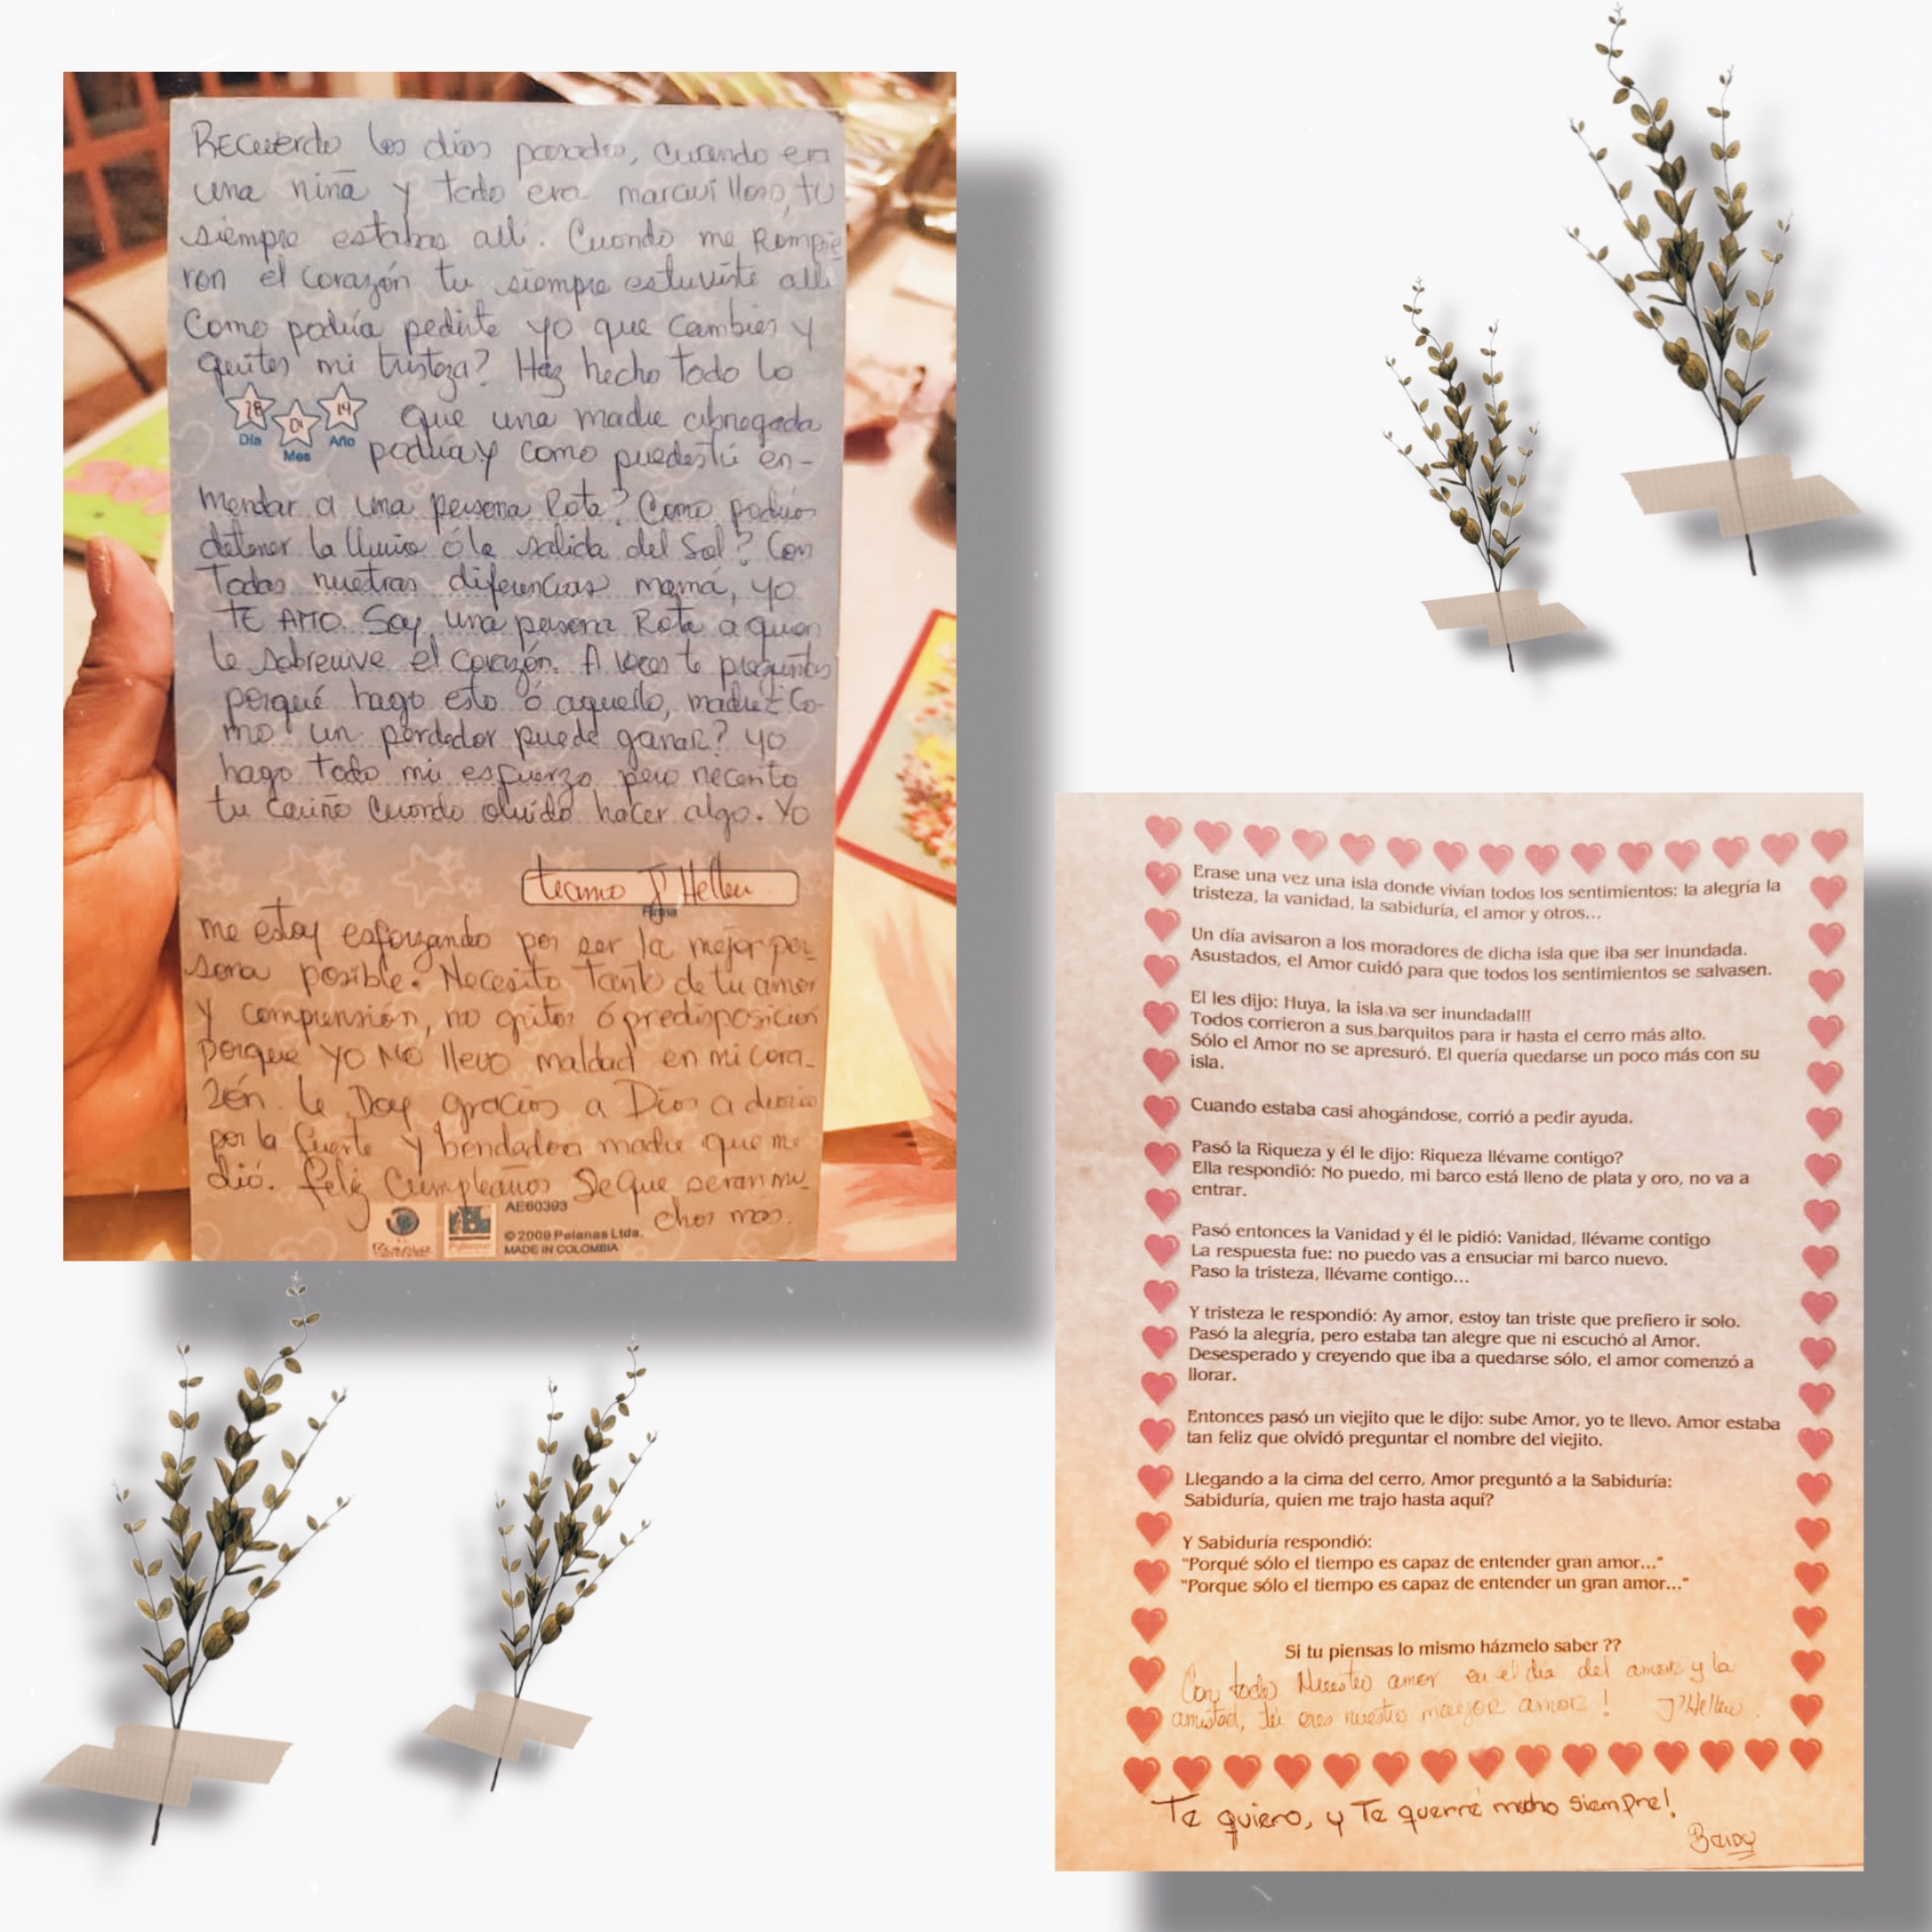 Recuerdo los dias pasados, cuando era
una niña y todo era maravilloso, tu
siempre estabas alli. Cuando me Rompie
ron el corazón tu siempre estuviste alli
Como podria pedirte yo que cambies y
quites mi tristeza? Haz hecho todo lo
que una madre abnegada
podria y como puedes tú en-
Día Mes Año
mendar a una persona Rota? Como podrias
detener la lluvia ó la salida del Sol? Con
Todas nuetras diferencias mamá, yo
TE AMO. Soy una persona Rota a quien
le sobrevive el corazón. A veces te preguntas
porqué hago esto ó aquello, madre ¿Co-
mo un perdedor puede ganar? yo
hago todo mi esfuerzo pero necesito
tu cariño cuando olvido hacer algo. Yo
teamo J'Hellen.
Firma
me estoy esforzando por ser la mejor per-
sona posible. Necesito tanto de tu amor
y comprensión, no gritos ó predisposicion
porque yo NO llevo maldad en mi cora-
zón. Le Doy gracias a Dios a diario
por la fuerte y bondadosa madre que me
dió. feliz Cumpleaños Se que seran mu
chos mas.
AE60393
© 2009 Palanas Ltda.
MADE IN COLOMBIA
Erase una vez una isla donde vivían todos los sentimientos: la alegría la
tristeza, la vanidad, la sabiduría, el amor y otros...
Un día avisaron a los moradores de dicha isla que iba ser inundada.
Asustados, el Amor cuidó para que todos los sentimientos se salvasen.
El les dijo: Huya, la isla va ser inundada!!!
Todos corrieron a sus barquitos para ir hasta el cerro más alto.
Sólo el Amor no se apresuró. El quería quedarse un poco más con su
isla.
Cuando estaba casi ahogándose, corrió a pedir ayuda.
Pasó la Riqueza y él le dijo: Riqueza llévame contigo?
Ella respondió: No puedo, mi barco está lleno de plata y oro, no va a
entrar.
Pasó entonces la Vanidad y él le pidió: Vanidad, llévame contigo
La respuesta fue: no puedo vas a ensuciar mi barco nuevo.
Paso la tristeza, llévame contigo...
Y tristeza le respondió: Ay amor, estoy tan triste que prefiero ir solo.
Pasó la alegría, pero estaba tan alegre que ni escuchó al Amor.
Desesperado y creyendo que iba a quedarse sólo, el amor comenzó a
llorar.
Entonces pasó un viejito que le dijo: sube Amor, yo te llevo. Amor estaba
tan feliz que olvidó preguntar el nombre del viejito.
Llegando a la cima del cerro, Amor preguntó a la Sabiduría:
Sabiduría, quien me trajo hasta aquí?
Y Sabiduría respondió:
"Porqué sólo el tiempo es capaz de entender gran amor..."
"Porque sólo el tiempo es capaz de entender un gran amor..."
Si tu piensas lo mismo házmelo saber ??
Con todo Nuestro amor en el dia del amor y la
amistad, tu eres nuestro mayor amor! J'Hellen.
Te quiero, y Te querré mucho siempre!